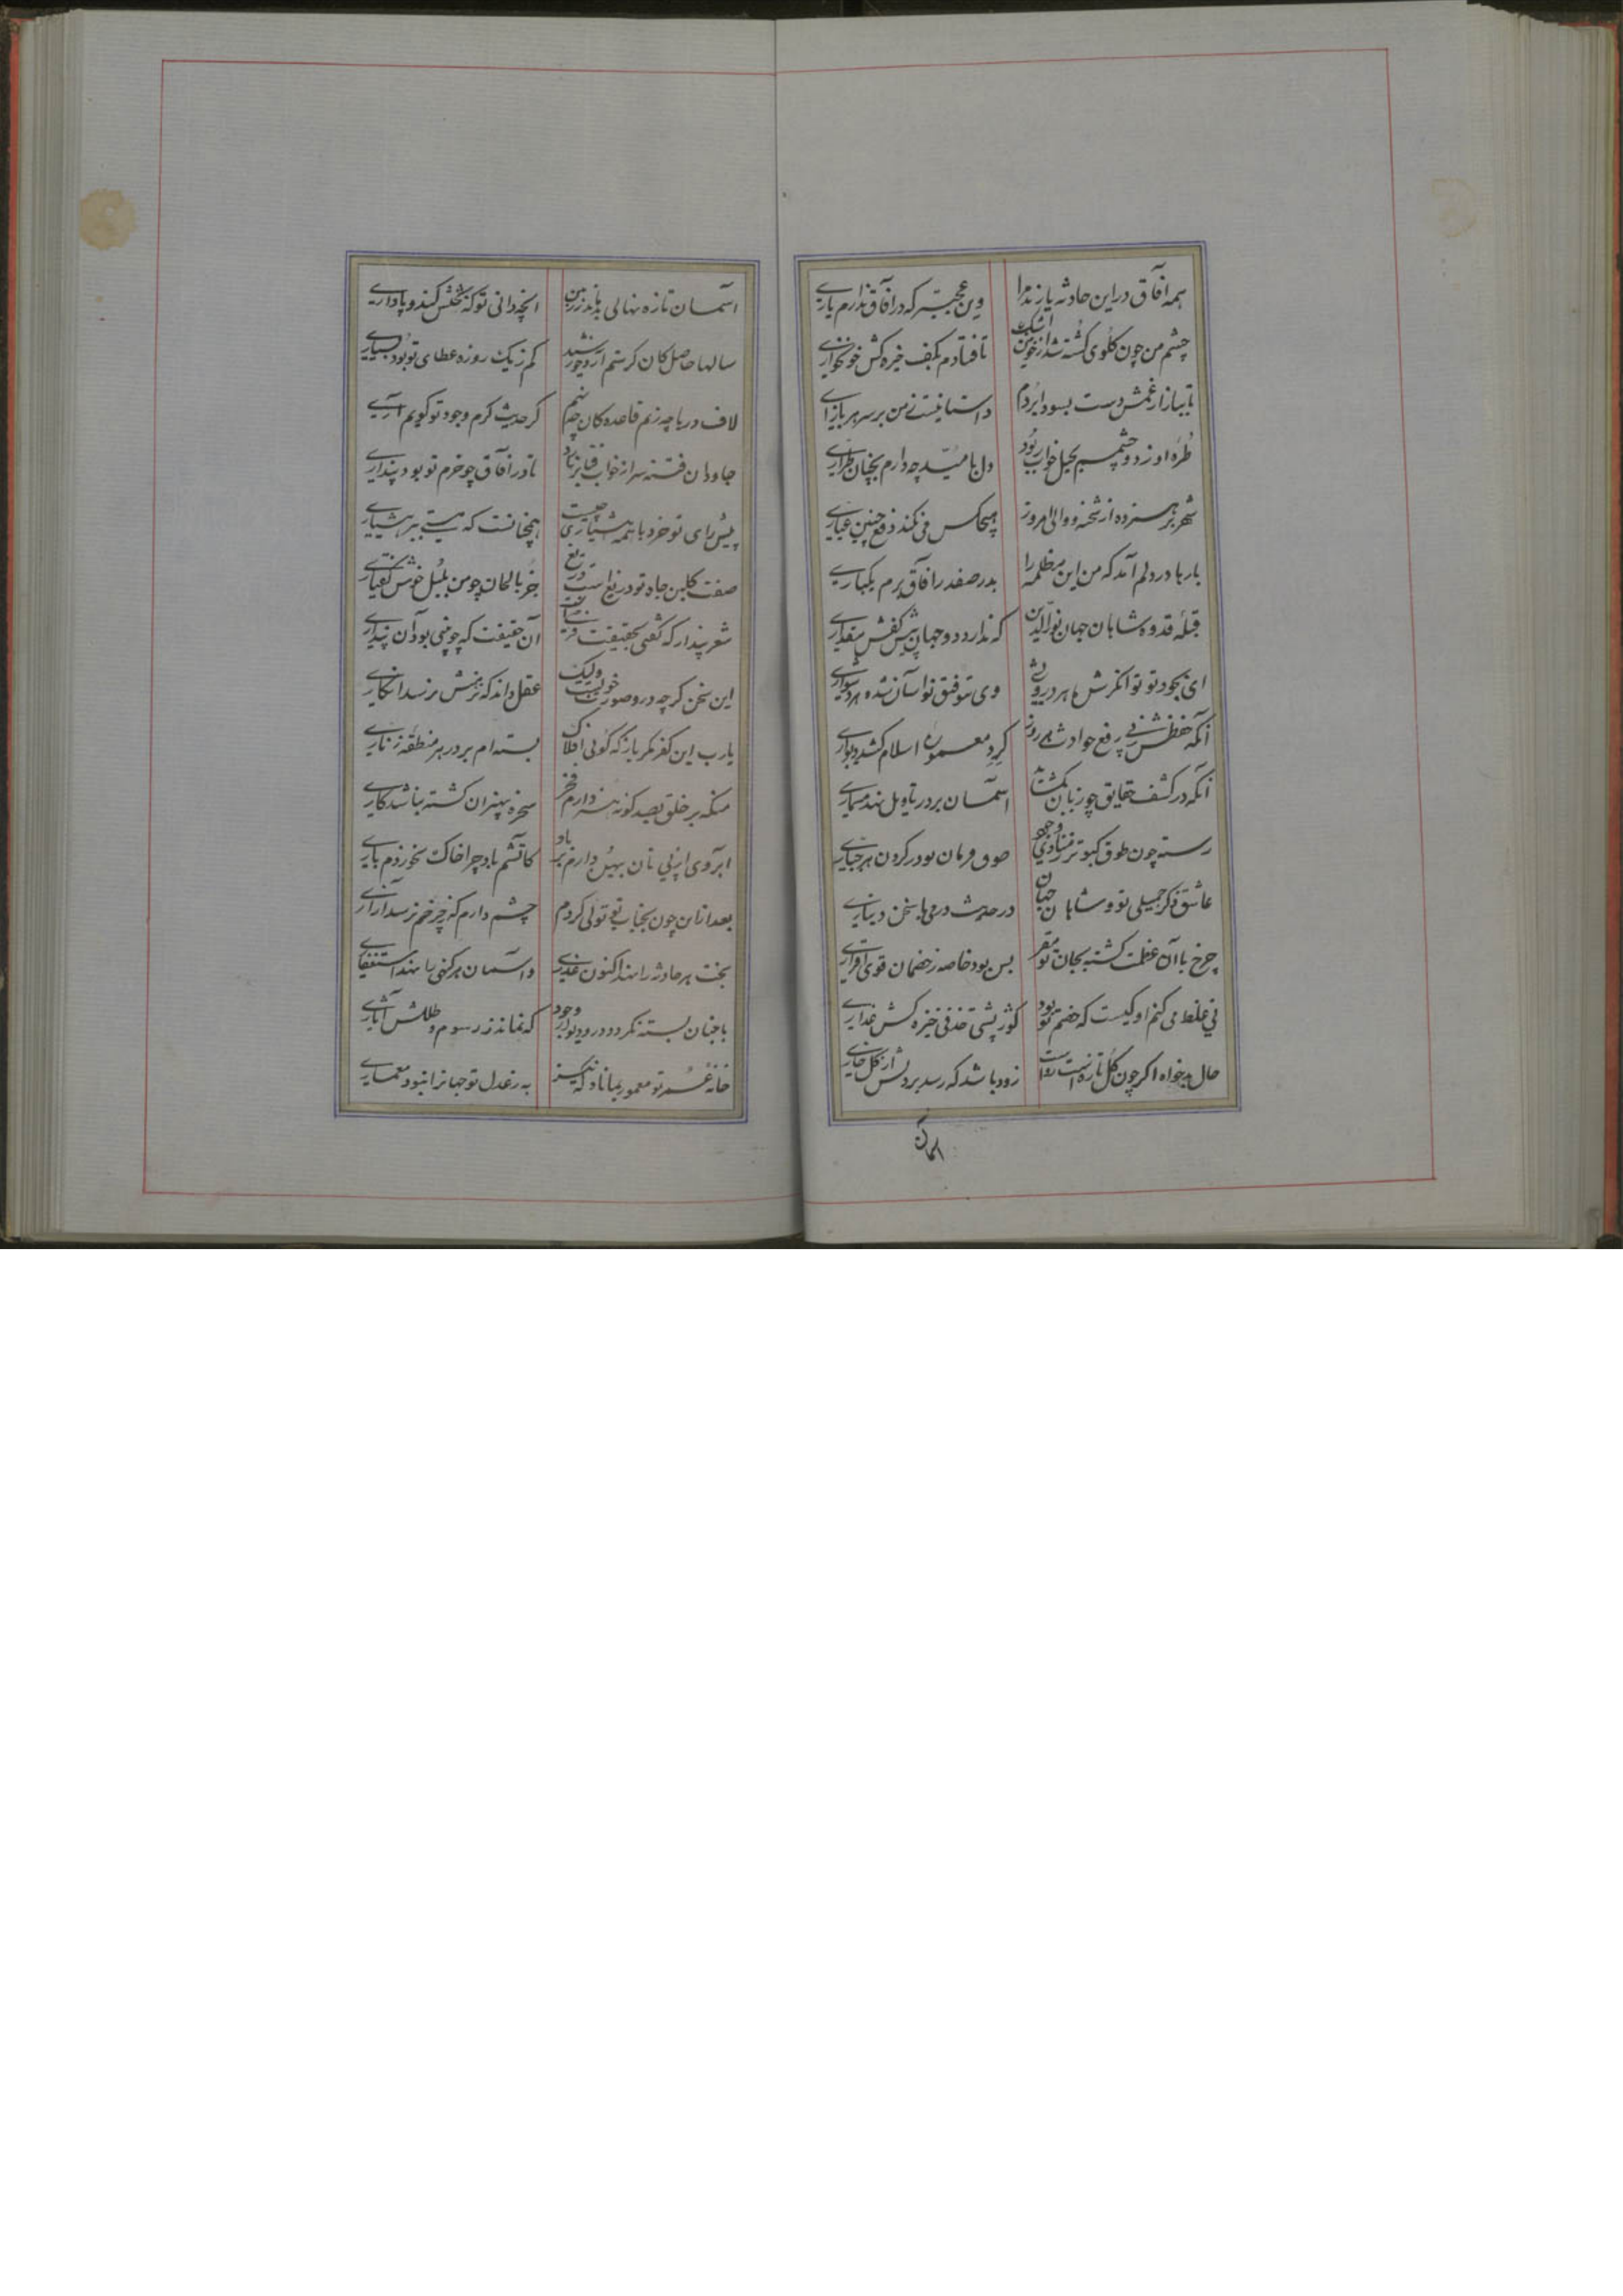 همه آفاق در این حادثه یارند مرا وین عجبتر که در آفاق ندارم یاری
چشم من چون گلوی کشته شد از خون اشک تا فتادم بکف خیره کش خونخواری
تا ببازار غمش دست بسودا بردم داستانیست ز من بر سر هر بازاری
طره او ز دو چشمم بحیل خواب ربود دل بامید چه دارم بچنان طراری
شهر بر هم زده از شحنه و والی امروز هیچکس می نکند دفع چنین عیاری
بارها در دلم آمد که من این مظلمه را بدر صفدر آفاق برم یکباری
قبله و قدوه شاهان جهان نورالدین که ندارد دو جهان پیش کفش مقداری
ای بجود تو توانگر شده هر درویشی وی بتوفیق تو آسان شده هر دشواری
آنکه حفظش ز پی رفع حوادث هر روز گرد معموره اسلام کشد دیواری
آنکه در کشف حقایق چو زبان بگشاید آسمان بر در تاویل نهد مسماری
رسته چون طوق کبوتر ز وجود طوق فرمان تو در گردن هر جباری
عاشق ذکر جمیلی تو و شاهان جهان در حدیث درمی یا سخن دیناری
چرخ با آن عظمت گشته بجان تو مقر بس بود خاصه ز خصمان قوی اقراری
نی غلط می کنم او کیست که خصم تو بود کوژ پشتی خرفی خیره کشی غداری
حال بدخواه اگر چون گل تازه است رواست زود باشد که رسد بر دلش از گل خاری
آسمان
آسمان تازه نهالی بنماید ز زمین آنچه دانی تو که بخشش کند و پاداری
سالها حاصل کان گر ستم آرد خورشید کم ز یک روزه عطای تو بود بسیاری
لاف دریا چه زنم قاعده کان چه نهم گر حدیث کرم وجود تو گویم آری
جاودان فتنه سر از خواب فنا بر ناد تا در آفاق چو حزم تو بود بیداری
پیش رای تو خرد با همه هشیاری چیست همچنانست که مستی ببر هشیاری
صفت گلبن جاه تو دریغ است دریغ جز بالحان چو من بلبل خوش گفتاری
شعر پندار که گفتی بحقیقت آن حقیقت که چو نبی بود آن پنداری
این سخن گرچه در و صورت خوبست ولیک عقل داند که بنرخش نرسد انکاری
یا رب این کفر مگر باز که گوئی افلاک بسته ام بر در بر منطقه زناری
منکه بر خلق بصد گونه هنر دارم فخر سخره بی هنران گشته نباشد کاری
آبروی از پی نان بیهده دارم بر باد کاتشم باد چرا خاک نخوردم باری
بعد از این چون بجناب تو تولی کردم چشم دارم که ز چرخم نرسد آزاری
بخت هر حادثه را نهد اکنون عذری و آسمان هر گنهی را نهد استغفاری
تا جهان بسته نگردد در و دیوار وجود که نماند ز رسوم و طللش آثاری
خانه عمر تو معمور بماناد که نیز به ز عدل تو جهانرا نبود معماری